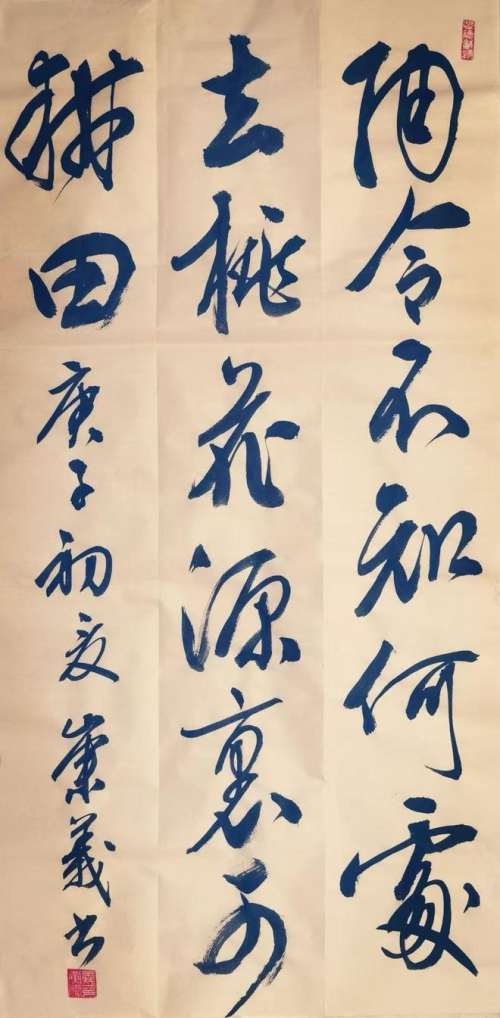 陶令不知何處
去桃花源裏可
耕田 庚子初夏 崇義书